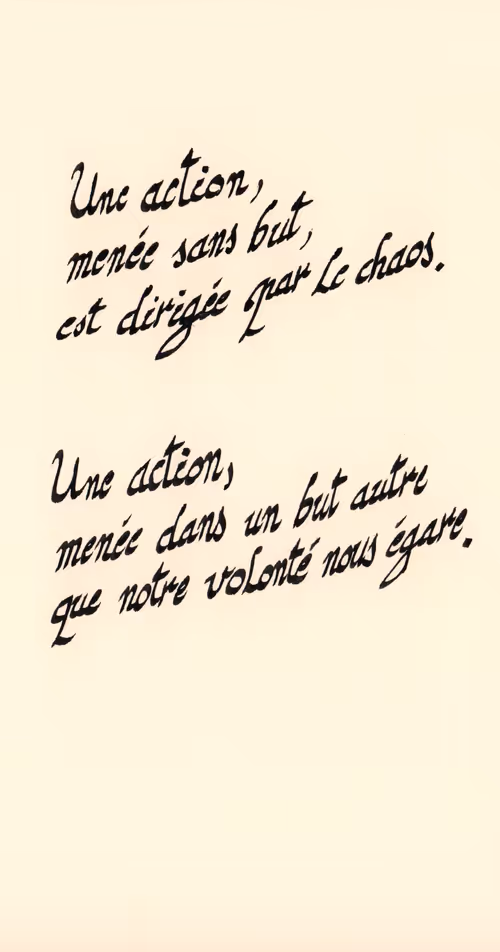 Une action,
menée sans but,
est dirigée par le chaos.
Une action,
menée dans un but autre
que notre volonté nous égare.